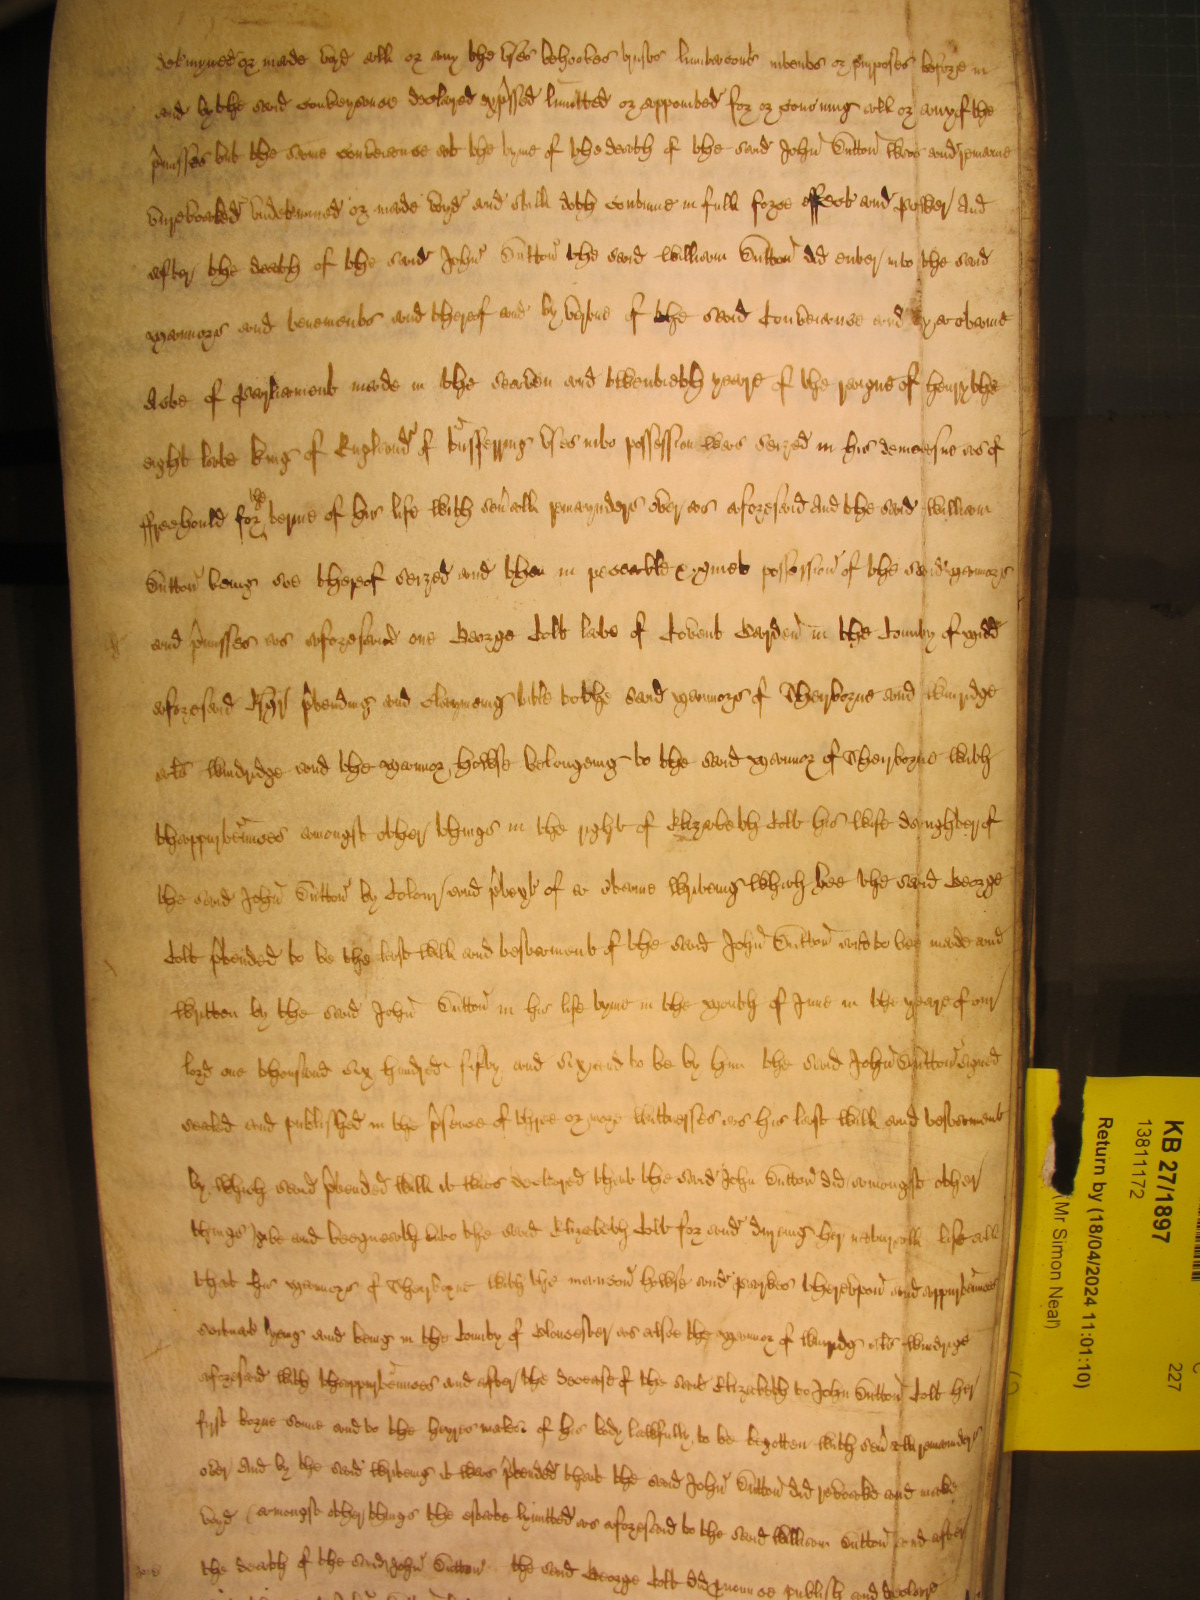 determyned or made voyd all or any the uses behoofes trusts limitacons intents or purposes before in
and by the said conveyance declared expssed limitted or appointed for or concerning all or any of the
pmisses but the same conveiance att the tyme of the death of the said John Sutton was and remaine
unrevoaked undetermined or made voyd and still doth continue in full force effect and power And
after the death of the said John Sutton the said William Sutton did enter into the said
Mannors and tenements and thereof and by vertue of the said Conveiance and by a certaine
Acte of parliament made in the seaven and twentieth yeare of the raigne of henry the
eight late king of England of transferring uses into possession was seized in his demeasne as of
ffreehould for the terme of his life with sevall remaynders over as aforesaid And the said William
Sutton being soe thereof seized and then in peaceable & quiet possession of the said Mannors
and pmisses as aforesaid one George Colt late of Covent Garden in the County of Midd
aforesaid Esqr ptending and Claymeing title to the said Mannors of Sherborne and Winridge
als Windridge and the Mannor howse belongeing to the said Mannor of Sherborne with
thappurtennces amongst other things in the right of Elizabeth Colt his wife daughter of
the said John Sutton by Colour and ptext of a certaine writeing which hee the said George
Colt ptended to be the last will and testament of the said John Sutton and to bee made and
written by the said John Sutton in his life tyme in the Month of June in the yeare of our
lord one thousand six hundred fifty and six and to be by him the said John Sutton signed
sealed and published in the psence of three or more wittnesses as his last will and testament
by which said ptended will it was declared that the said John Sutton did amongst other
things give and bequeath unto the said Elizabeth Colt for and dureing her naturall life all
that his Mannors of Sherborne with the mancon howse and parkes thereupon and appurtennces
scituate lyeing and being in the County of Gloucester as alsoe the Mannor of Winridg als Windrige
aforesaid with thappurtennces and after the decease of the said Elizabeth to John Sutton Colt her
first borne sonne and to the heyres males of his body lawfully to be begotten with sevall remainders
over And by the said writeing it was ptended that the said John Sutton did revoake and make
voyd amongst other things the estate lymitted as aforesaid to the said William Sutton and after
the death of the said John Sutton the said George Colt did pnounce publish and declare
KB 27/1897
13811172
227
Return by (18/04/2024 11:01:10)
(Mr Simon Neal)